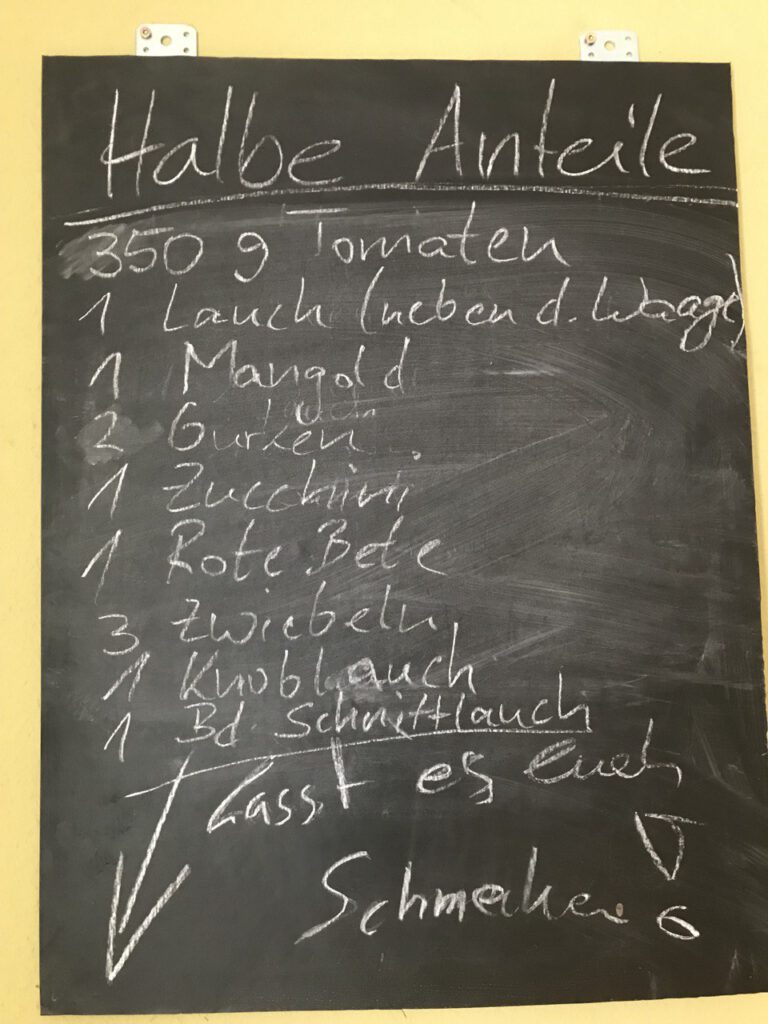 Halbe Anteile
350 g Tomaten
1 Lauch (neben d. Waage)
1 Mangold
2 Gurken
1 Zucchini
1 Rote Bete
3 Zwiebeln
1 Knoblauch
1 Bd. Schnittlauch
Lasst es euch
Schmecken